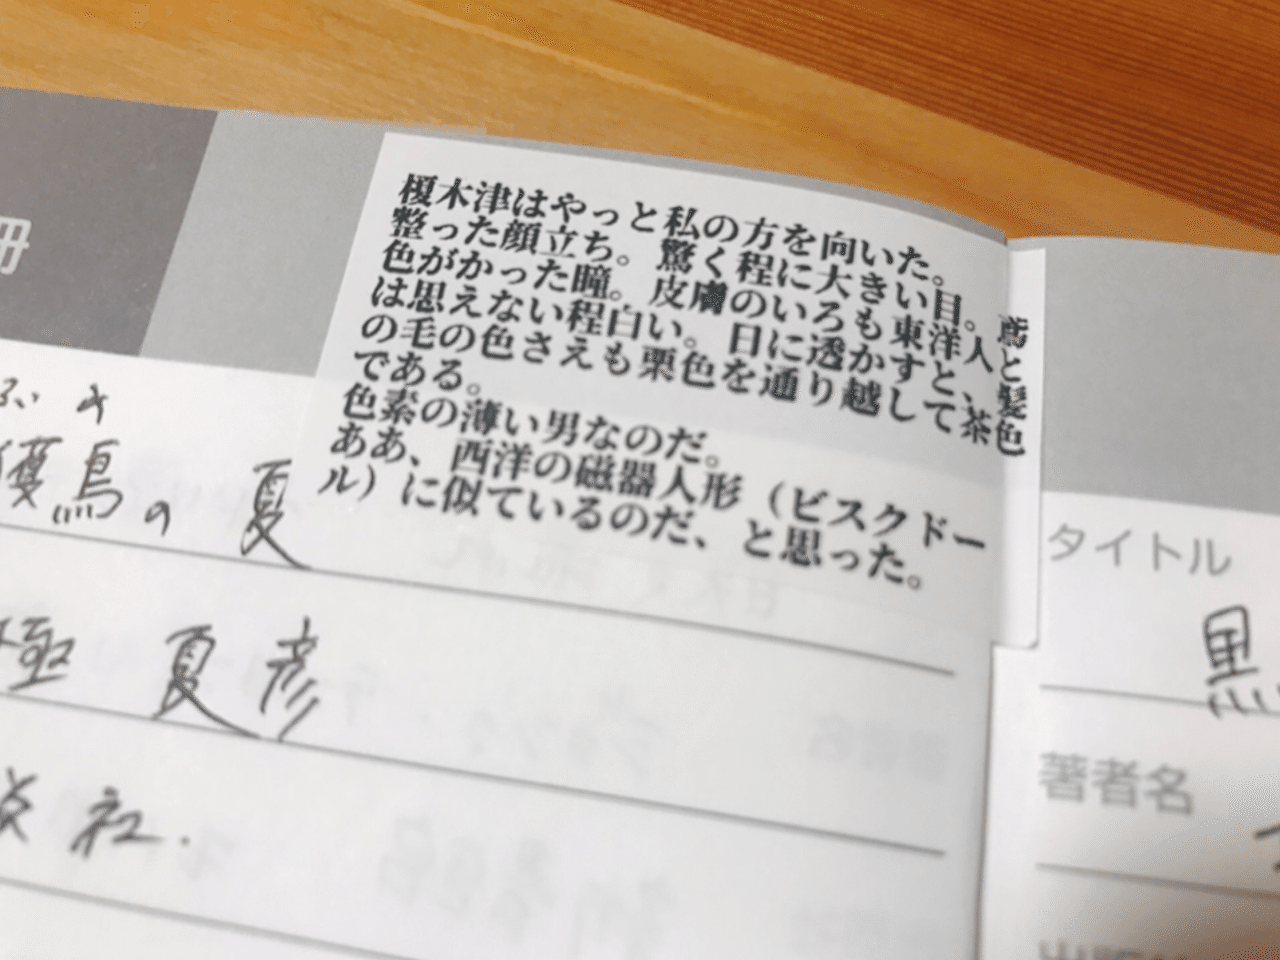 冊
榎木津はやっと私の方を向いた。
整った顔立ち。驚く程に大きい目。鳶
色がかった瞳。皮膚のいろも東洋人と
は思えない程白い。日に透かすと、髪
の毛の色さえも栗色を通り越して茶色
である。
色素の薄い男なのだ。
ああ、西洋の磁器人形（ビスクドー
ル）に似ているのだ、と思った。
獲鳥の夏
極 夏彦
談社.
タイトル
黒
著者名